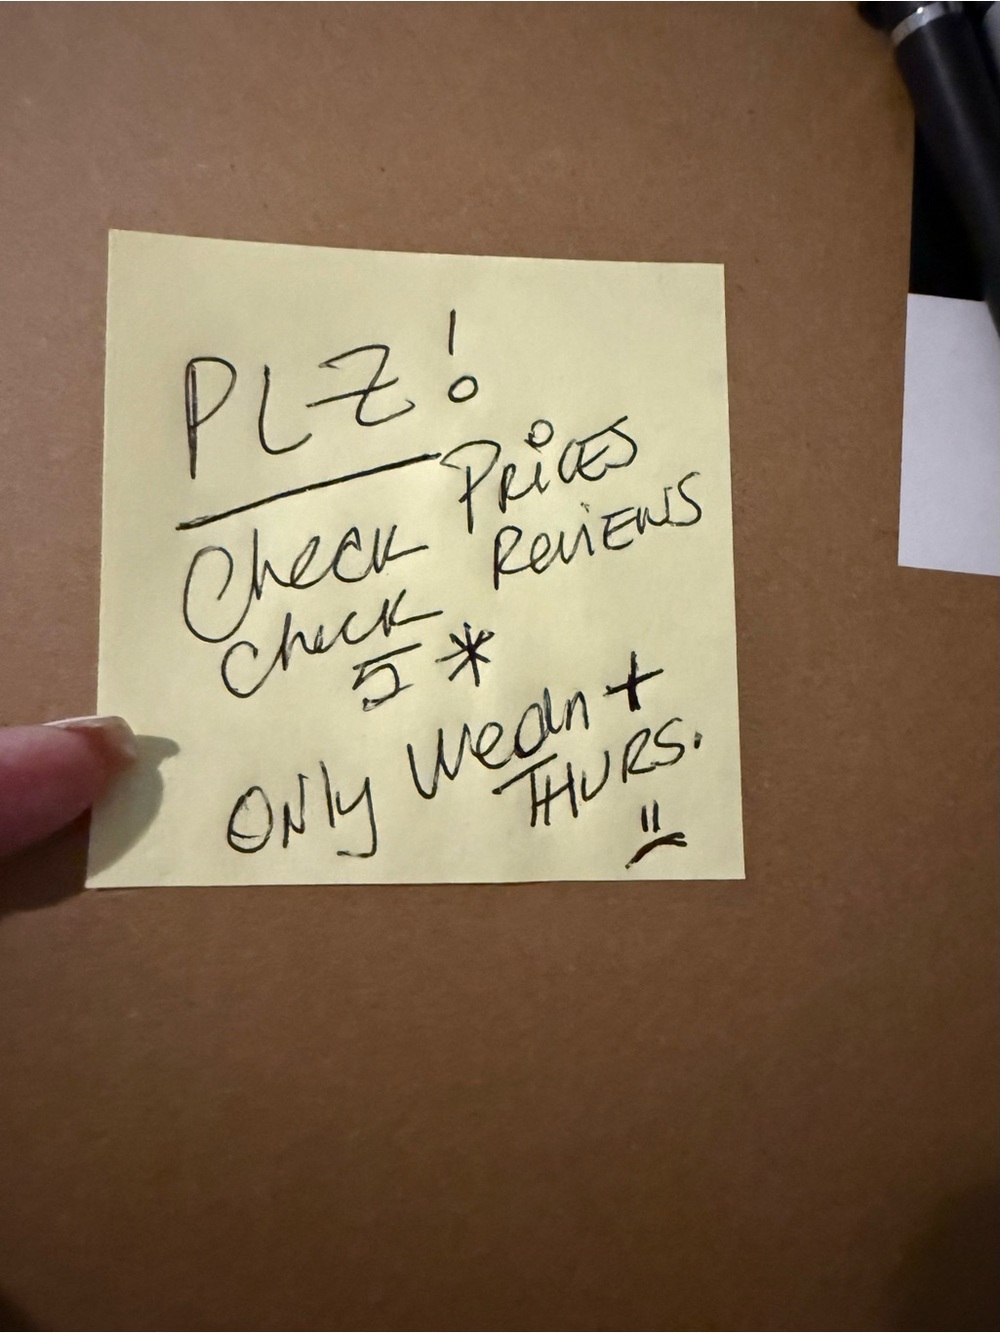 PLZ!
Check Prices
Check Reviews
5 *
Only Wedn +
THURS.